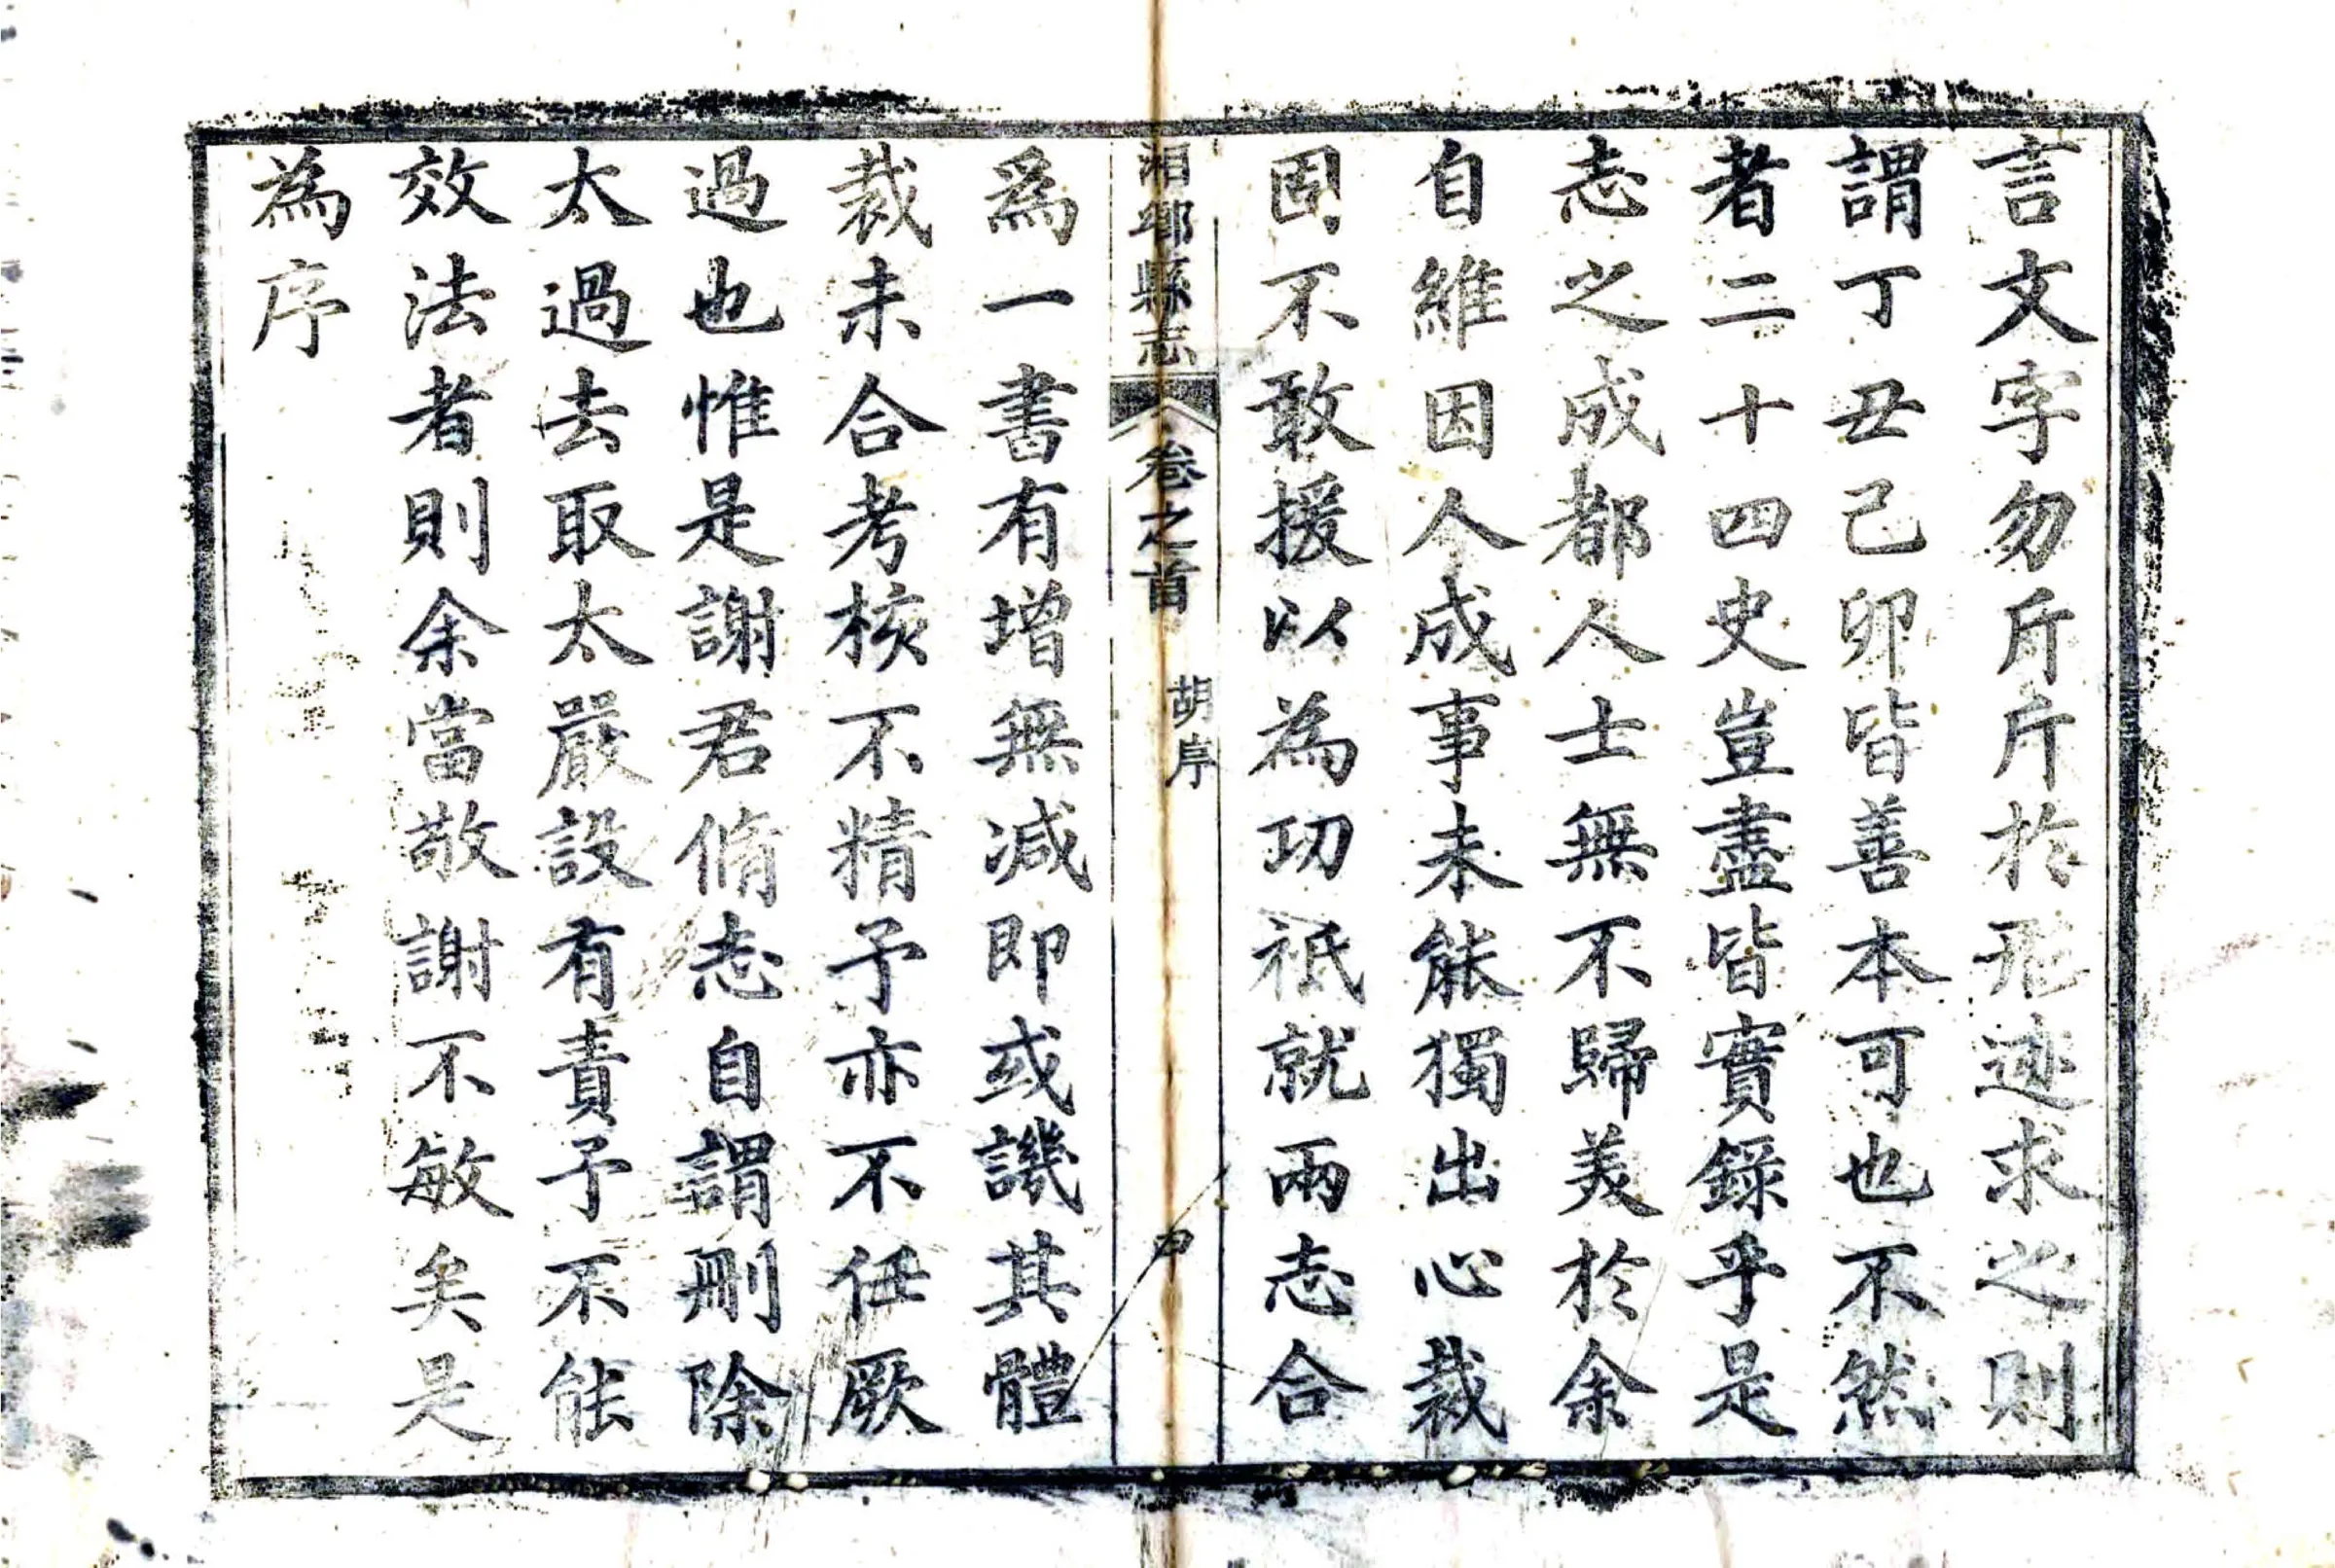 言文字勿斤斤於形迹求之則
謂丁丑己卯皆善本可也不然
者二十四史豈盡皆實錄乎是
志之成都人士無不歸美於余
自維因人成事未能獨出心裁
固不敢援以為功祇就兩志合
湘鄉縣志
卷之首
胡序
爲一書有增無減即或譏其體
裁未合考核不精予亦不任厥
過也惟是謝君脩志自謂刪除
太過去取太嚴設有責予不能
效法者則余當敬謝不敏矣是
為序